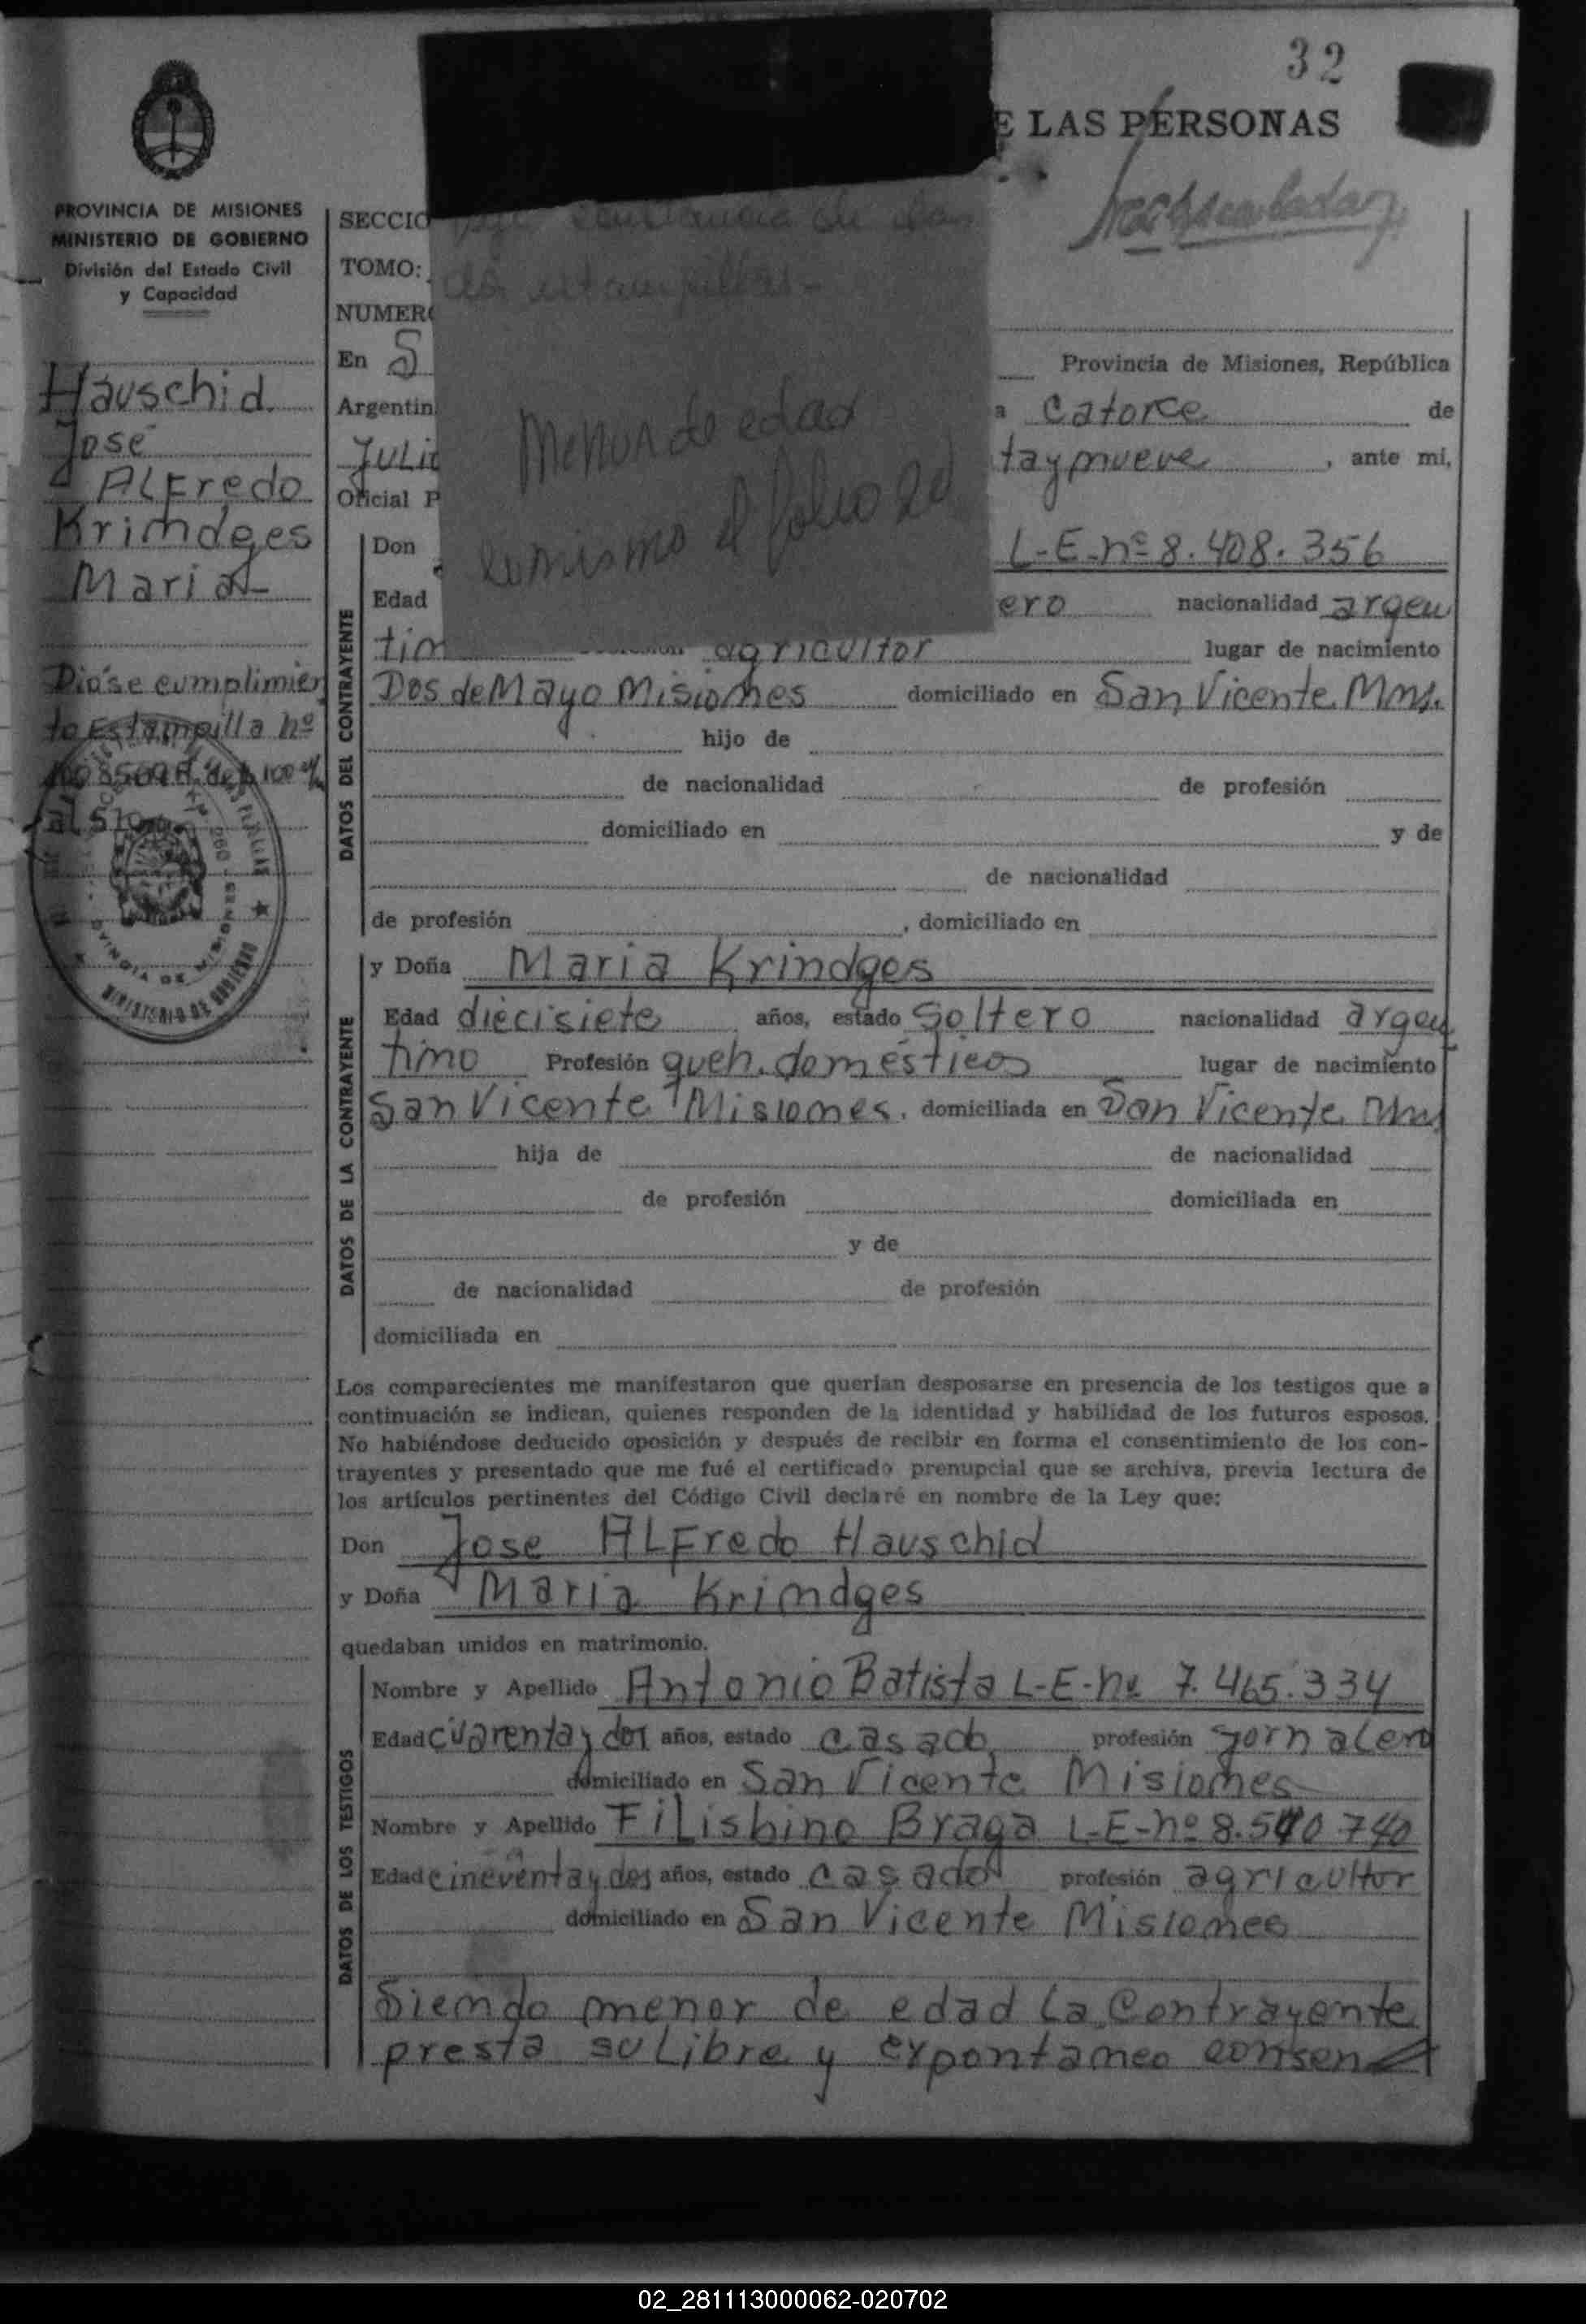 32
E LAS PERSONAS
PROVINCIA DE MISIONES
MINISTERIO DE GOBIERNO
División del Estado Civil
y Capacidad
SECCIO
TOMO:
NUMER
En S
Provincia de Misiones, República
Argentin
a catorce de
Julio
tay nueve, ante mi,
Oficial P
Menor de edad
lo mismo el folio
Hauschid
José
ALFredo
Krindges
Maria
Diose cumplimien
to Estampilla nº
al 510
MINISTERIO DE GOBIERNO
DATOS DEL CONTRAYENTE
Don L-E-nº 8.408.356
Edad ero nacionalidad argen
tin agricultor lugar de nacimiento
Dos de Mayo Misiones domiciliado en San Vicente Mns.
hijo de
de nacionalidad de profesión
domiciliado en y de
de nacionalidad
de profesión , domiciliado en
DATOS DE LA CONTRAYENTE
y Doña Maria Krindges
Edad diecisiete años, estado Soltero nacionalidad argen
tino Profesión queh. domésticos lugar de nacimiento
San Vicente Misiones. domiciliada en San Vicente Mns
hija de de nacionalidad
de profesión domiciliada en
y de
de nacionalidad de profesión
domiciliada en
Los comparecientes me manifestaron que querían desposarse en presencia de los testigos que a
continuación se indican, quienes responden de la identidad y habilidad de los futuros esposos.
No habiéndose deducido oposición y después de recibir en forma el consentimiento de los con-
trayentes y presentado que me fué el certificado prenupcial que se archiva, previa lectura de
los artículos pertinentes del Código Civil declaré en nombre de la Ley que:
Don Jose ALFredo Hauschid
y Doña Maria Krindges
quedaban unidos en matrimonio.
DATOS DE LOS TESTIGOS
Nombre y Apellido Antonio Batista L-E-nº 7.465.334
Edad cuarenta y dos años, estado casado profesión jornalero
domiciliado en San Vicente Misiones
Nombre y Apellido FiLisbino Braga L-E-nº 8.540.740
Edad cincuenta y dos años, estado casado profesión agricultor
domiciliado en San Vicente Misiones
Siendo menor de edad La Contrayente
presta su Libre y expontaneo consen
02_281113000062-020702